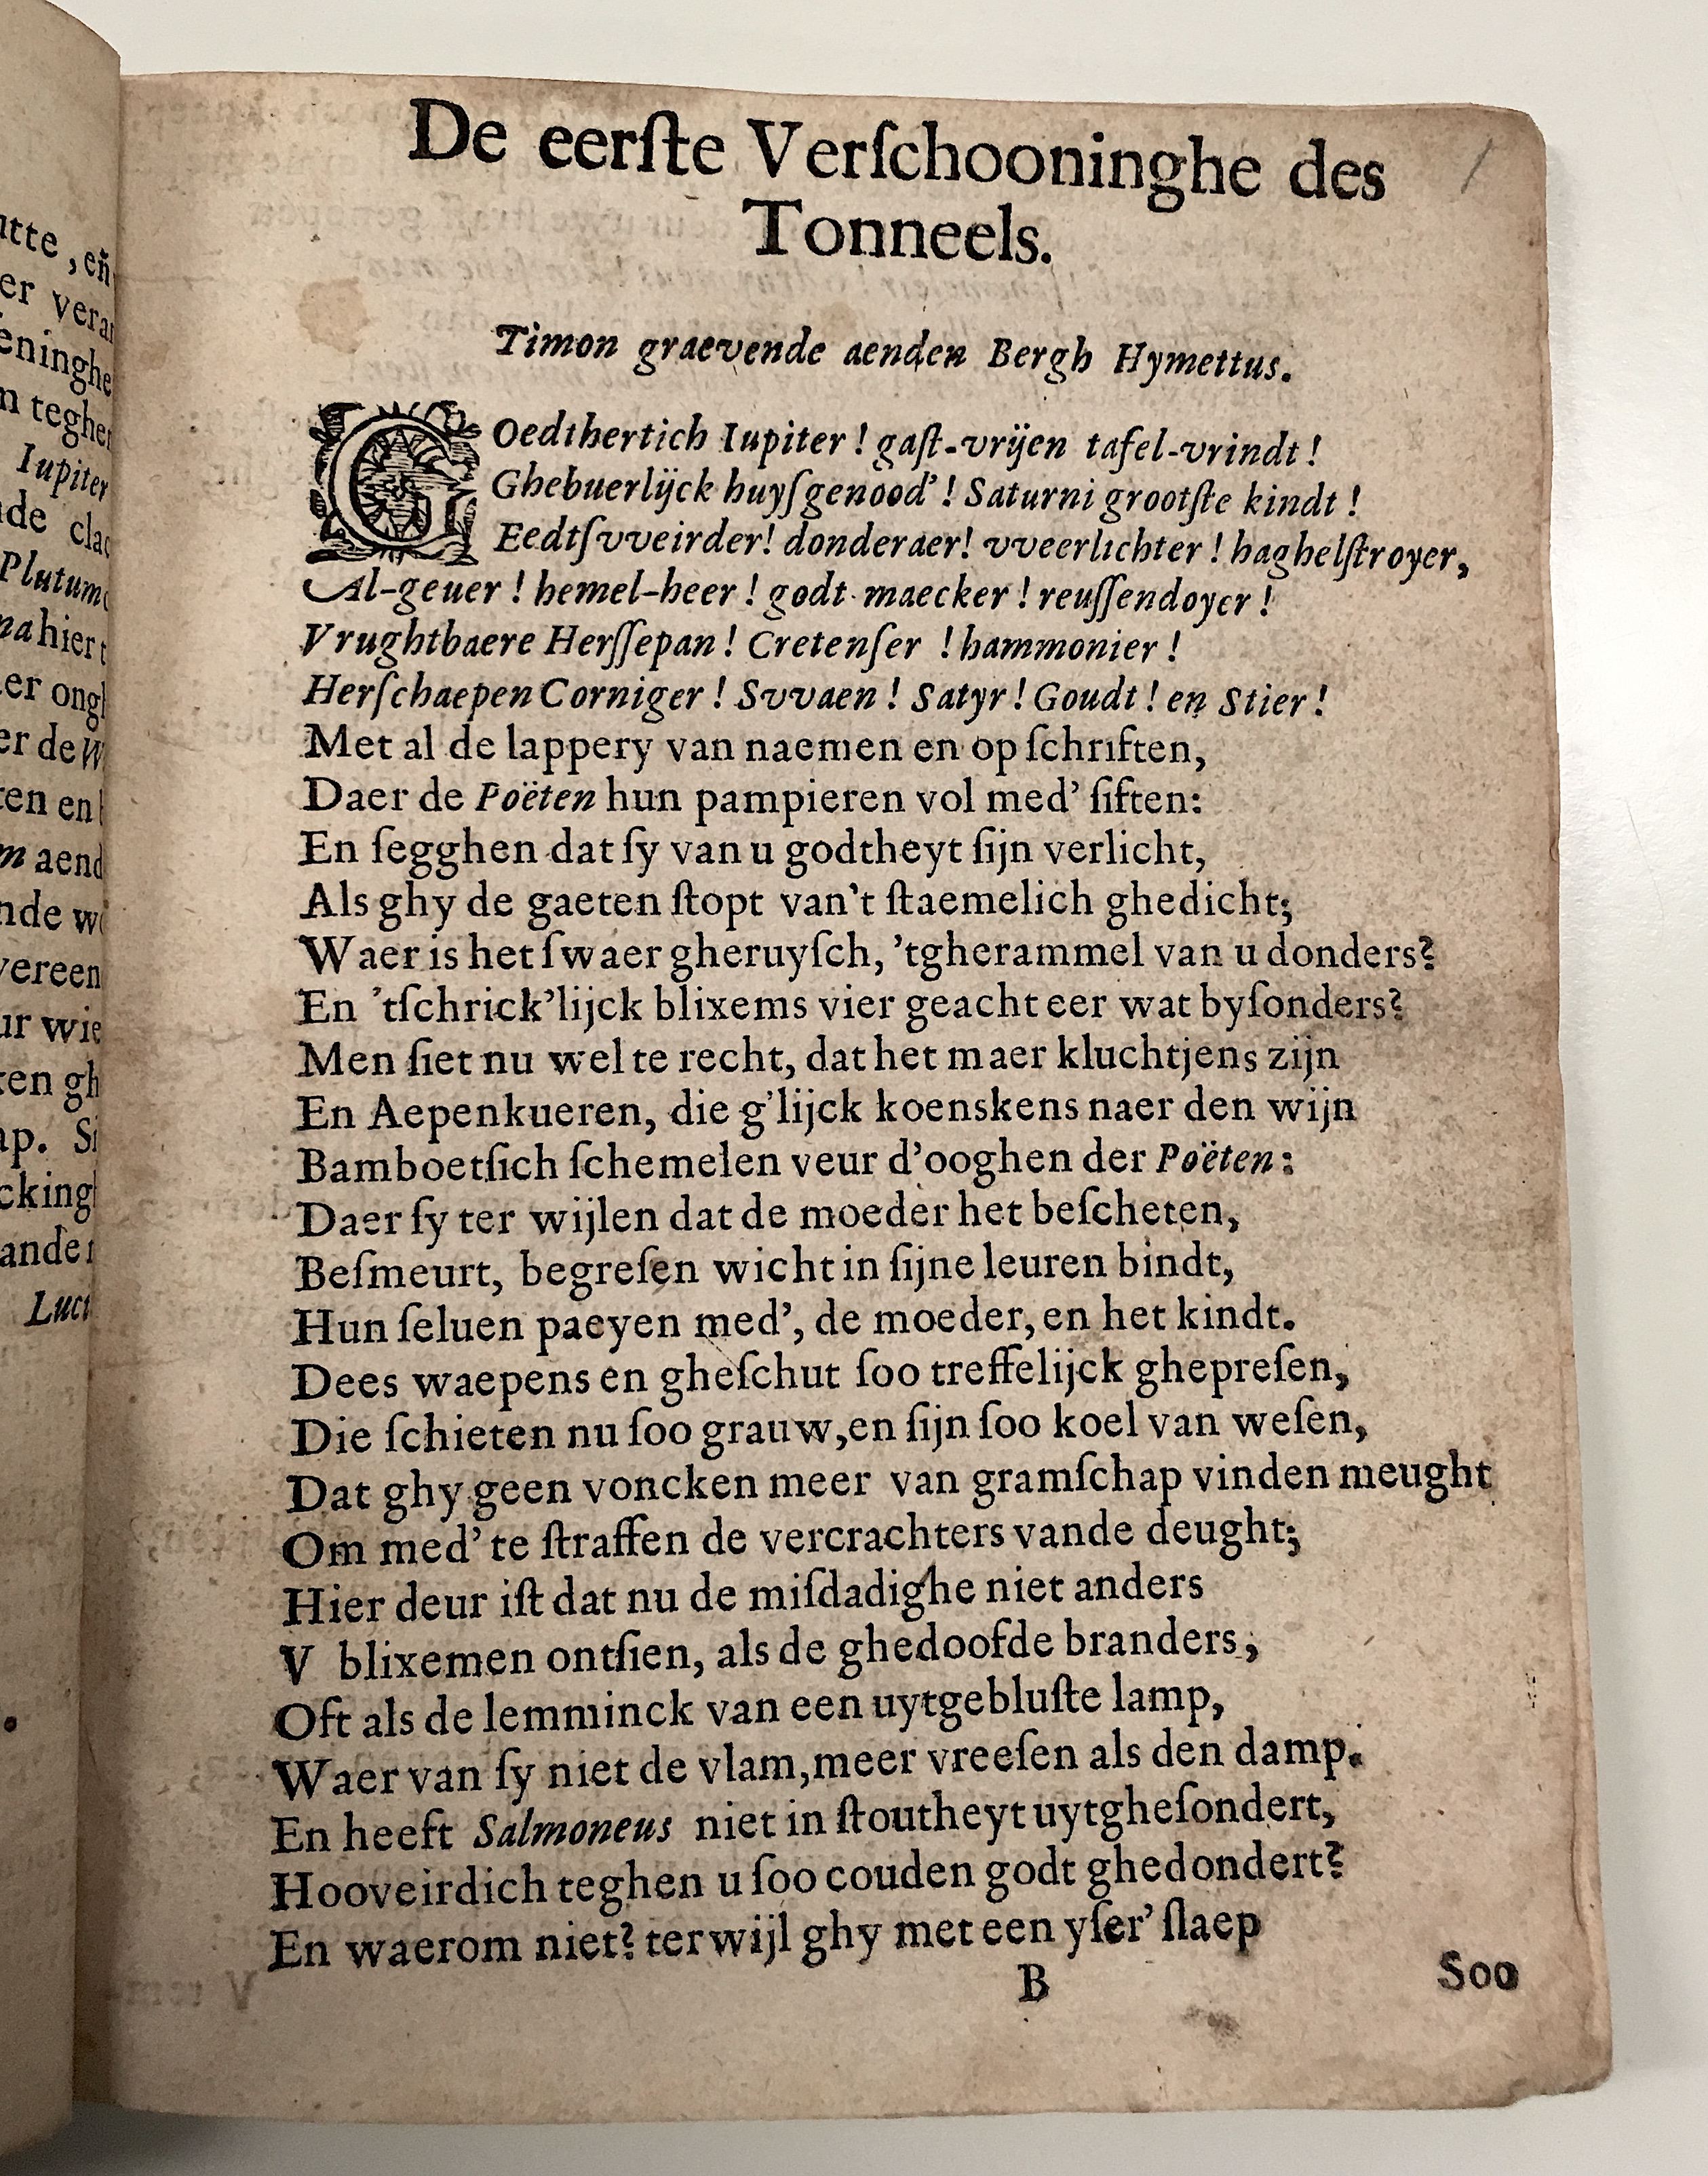 utte, en̄
er
eninghe
n teghen
Iupiter
de
Plutum
hier
er
er de
ten en
m
nde
vereen
ur
ten
ap.
De eerſte Verſchooninghe des
Tonneels.
Timon graevende aenden Bergh Hymettus.
GOedthertich Iupiter! gaſt-vrijen tafel-vrindt!
Ghebuerlijck huyſgenood'! Saturni grootſte kindt!
Eedtſvveirder! donderaer! vveerlichter! haghelſtroyer,
Al-geuer! hemel-heer! godt-maecker! reuſſendoyer!
Vrughtbaere Herſſepan! Cretenſer! hammonier!
Herſchaepen Corniger! Svvaen! Satyr! Goudt! en Stier!
Met al de lappery van naemen en op ſchriften,
Daer de Poëten hun pampieren vol med' ſiften:
En ſegghen dat ſy van u godtheyt ſijn verlicht,
Als ghy de gaeten ſtopt van't ſtaemelich ghedicht;
Waer is het ſwaer gheruyſch, 'tgherammel van u donders?
En 'tſchrick'lijck blixems vier geacht eer wat byſonders?
Men ſiet nu wel te recht, dat het maer kluchtjens zijn
En Aepenkueren, die g'lijck koenskens naer den wijn
Bamboetſich ſchemelen veur d'ooghen der Poëten:
Daer ſy ter wijlen dat de moeder het beſcheten,
Beſmeurt, begreſen wicht in ſijne leuren bindt,
Hun ſeluen paeyen med', de moeder, en het kindt.
Dees waepens en gheſchut ſoo treffelijck ghepreſen,
Die ſchieten nu ſoo grauw, en ſijn ſoo koel van weſen,
Dat ghy geen voncken meer van gramſchap vinden meught
Om med' te ſtraffen de vercrachters vande deught;
Hier deur iſt dat nu de miſdadighe niet anders
V blixemen ontſien, als de ghedoofde branders,
Oft als de lemminck van een uytgebluſte lamp,
Waer van ſy niet de vlam, meer vreeſen als den damp.
En heeft Salmoneus niet in ſtoutheyt uytgheſondert,
Hooveirdich teghen u ſoo couden godt ghedondert?
En waerom niet? terwijl ghy met een yſer' ſlaep
B
Soo